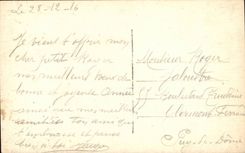 Le 28-12-16
Je vient t'offrir mon
cher petit Roger
mes meilleurs vœux de
bonne et joyeuse année
ainsi que mes meilleurs
amitiés ton ami qui
t'embrasse et pense
bien à toi
Monsieur Roger
Boulevard
Clermont Ferrand
Puy-de-Dôme